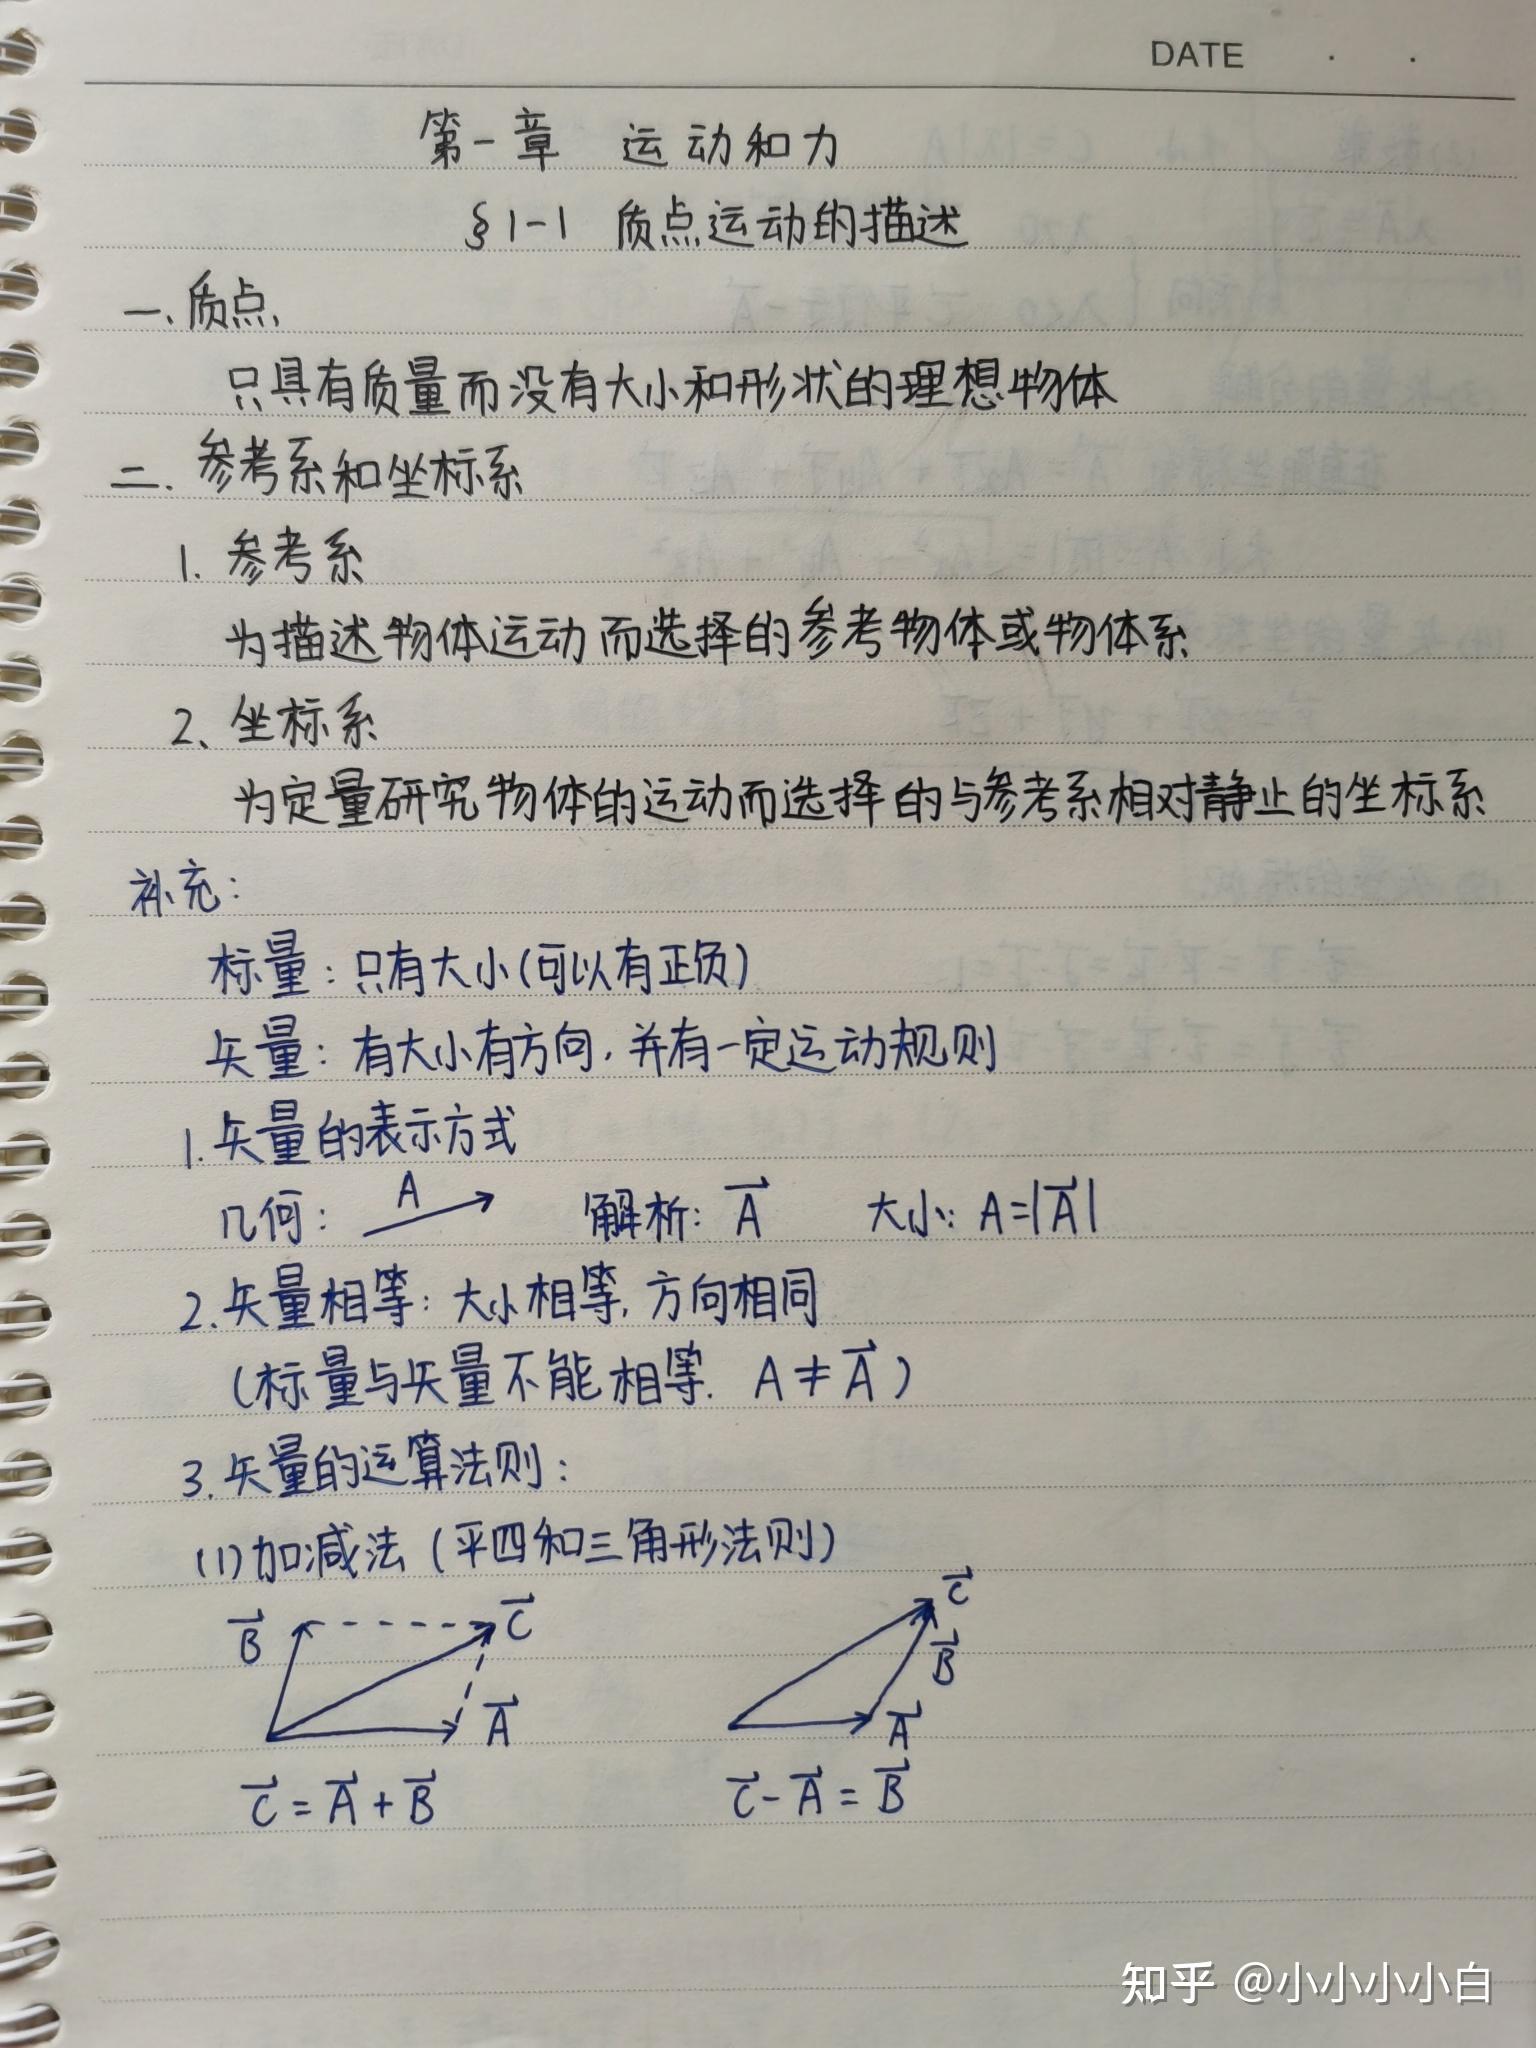 DATE . .
第一章 运动和力
§1-1 质点运动的描述
一、质点
只具有质量而没有大小和形状的理想物体
二、参考系和坐标系
1. 参考系
为描述物体运动而选择的参考物体或物体系
2、坐标系
为定量研究物体的运动而选择的与参考系相对静止的坐标系
补充:
标量:只有大小(可以有正负)
矢量:有大小有方向,并有一定运动规则
1.矢量的表示方式
几何: A 解析: A⃗ 大小: A=|A⃗|
2.矢量相等:大小相等,方向相同
(标量与矢量不能相等. A≠A⃗)
3.矢量的运算法则:
(1)加减法(平四和三角形法则)
B⃗ C⃗ A⃗ C⃗ B⃗ A⃗
C⃗=A⃗+B⃗ C⃗-A⃗=B⃗
知乎 @小小小小白